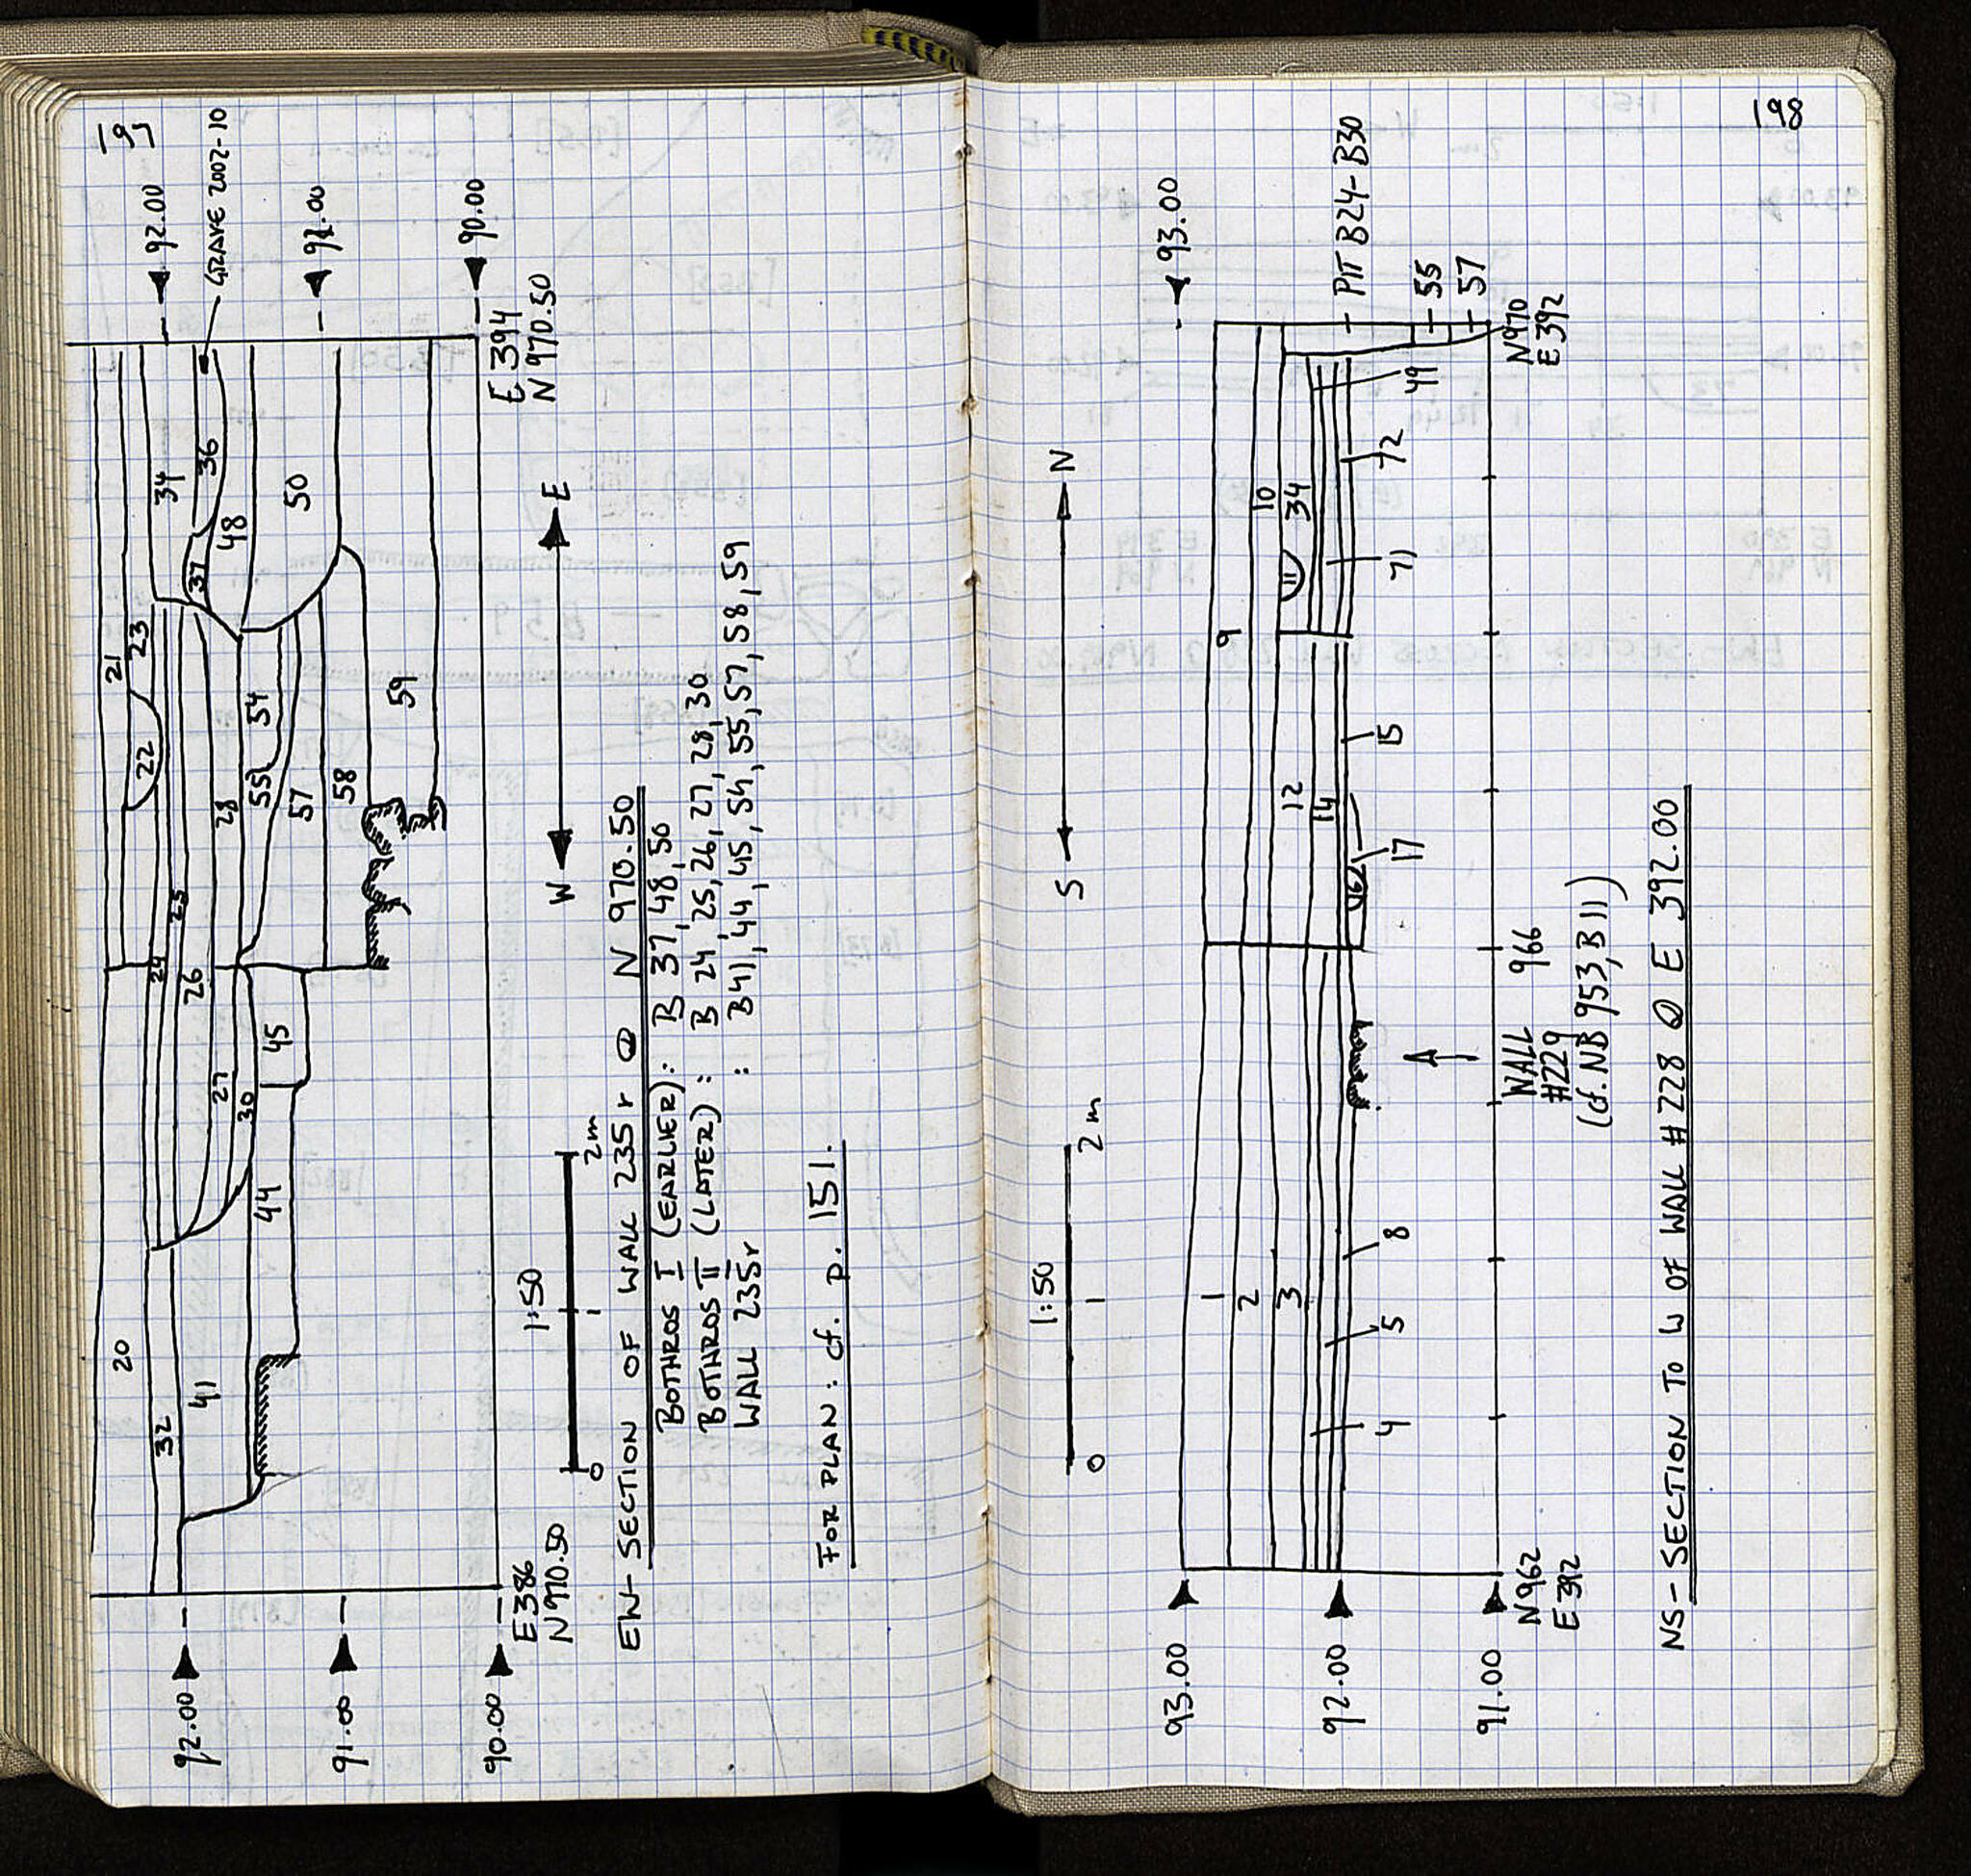 197
20
21
22
23
34
GRAVE 2002-10
32
41
24
25
26
37
36
48
50
27
28
30
54
55
44
45
57
58
59
92.00
91.00
90.00
92.00
91.00
90.00
E 386
N 970.50
E 394
N 970.50
1:50
0 1 2m
W E
EW-SECTION OF WALL 235r @ N 970.50
BOTHROS I (EARLIER): B 37, 48, 50
BOTHROS II (LATER): B 24, 25, 26, 27, 28, 30
WALL 235r : B41, 44, 45, 54, 55, 57, 58, 59
FOR PLAN: cf. p. 151.
198
1:50
0 1 2m
S N
93.00
92.00
91.00
93.00
1
2
3
4
5
8
9
10
11
12
14
15
16
17
34
71
72
49
PIT B24-B30
55
57
N962
E 392
WALL
#229
(cf. NB 953, B 11)
966
N970
E 392
NS-SECTION TO W OF WALL #228 @ E 392.00